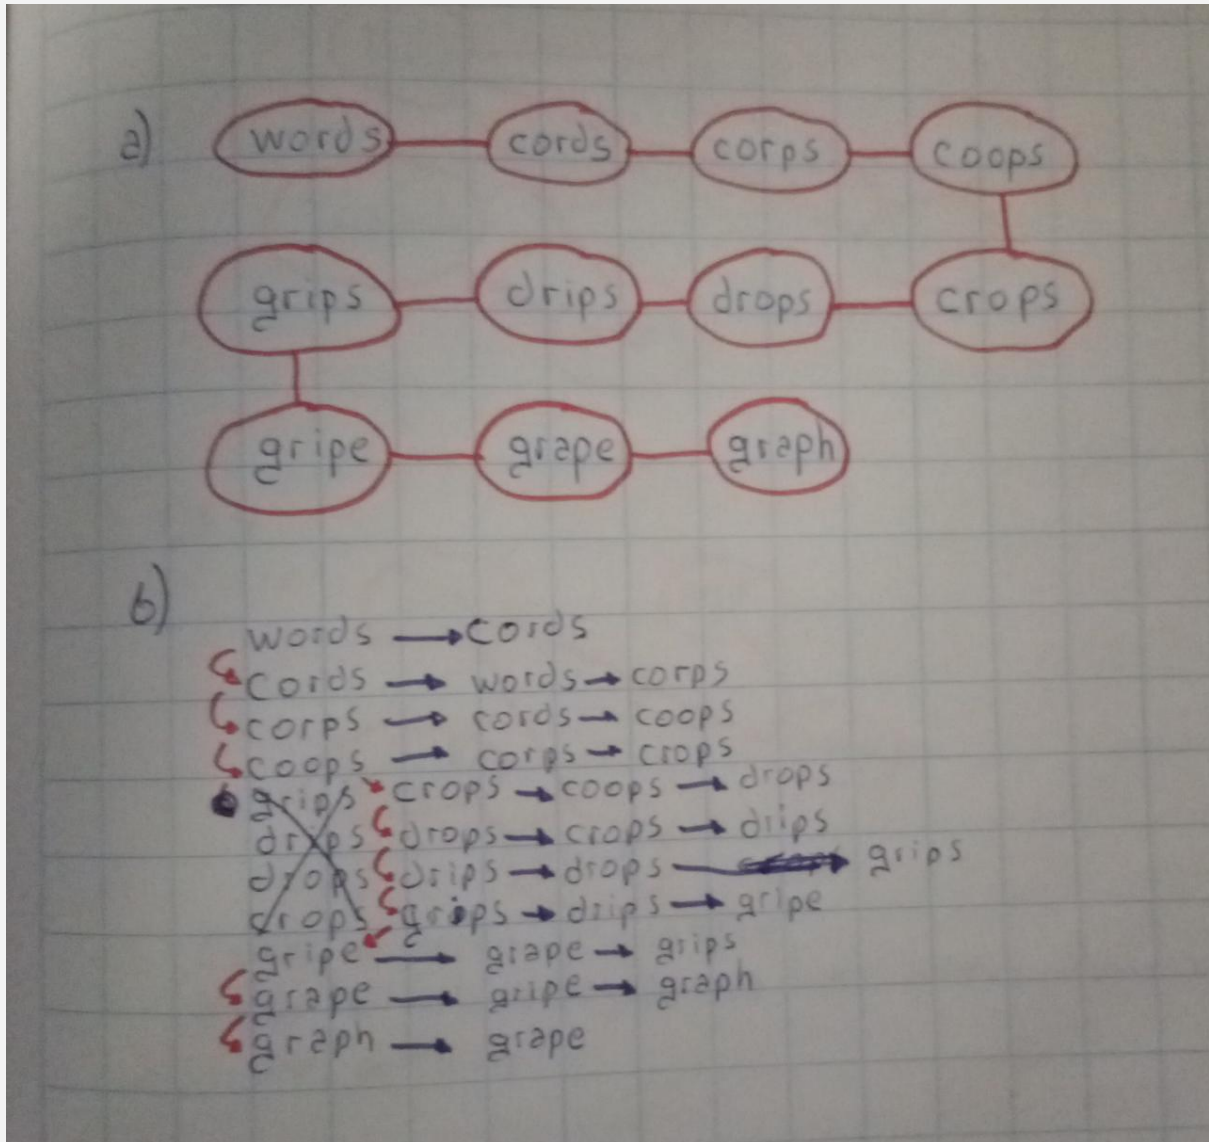 a) words cords corps coops
grips drips drops crops
gripe grape graph
b)
words → cords
cords → words → corps
corps → cords → coops
coops → corps → crops
grips crops → coops → drops
drips drops → crops → drips
drops drips → drops → grips
crops grips → drips → gripe
gripe → grape → grips
grape → gripe → graph
graph → grape